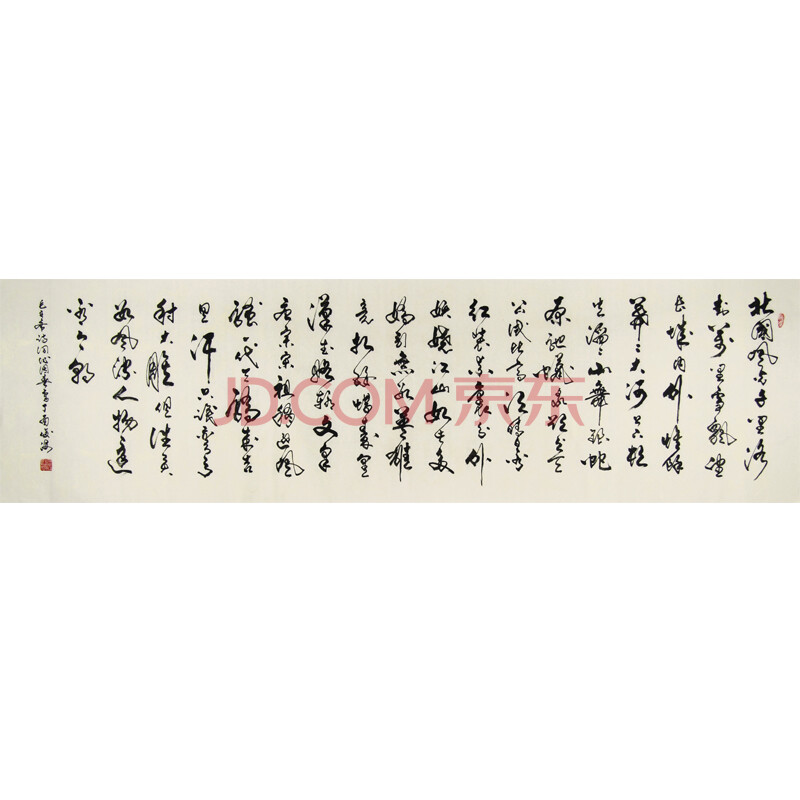 北國風光千里冰
封萬里雪飄望
長城內外惟餘
莽莽大河上下頓
失滔滔山舞銀蛇
原馳蠟象欲與天
公試比高須晴日看
紅裝素裹分外
妖嬈江山如此多
嬌引無數英雄
竟折腰惜秦皇
漢武略輸文采
唐宗宋祖稍遜風
騷一代天驕成吉
思汗只識彎弓
射大雕俱往矣
數風流人物還
看今朝
詩詞沁園春雪
JD.COM 京东